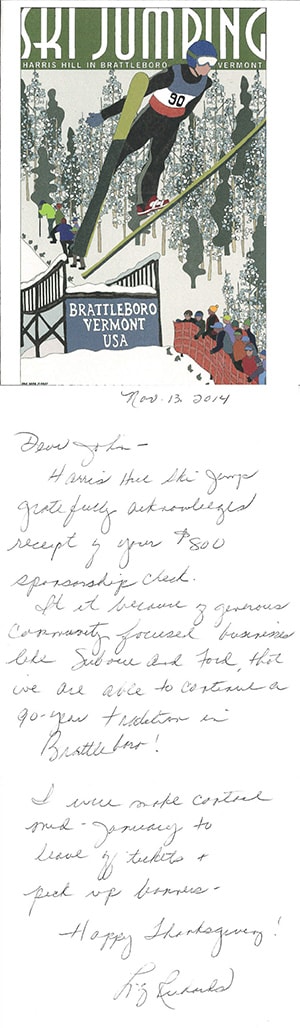 SKI JUMPING
HARRIS HILL IN BRATTLEBORO VERMONT
90
BRATTLEBORO
VERMONT
USA
Nov. 13. 2014
Dear John -
Harris Hill Ski Jump
gratefully acknowledges
receipt of your $800
sponsorship check.
It it because of generous
community focused businesses
like Subaru and Ford, that
we are able to continue a
90-year tradition in
Brattleboro!
I will make contact
mid-January to
leave off tickets +
pick up banners -
Happy Thanksgiving!
Liz Richards